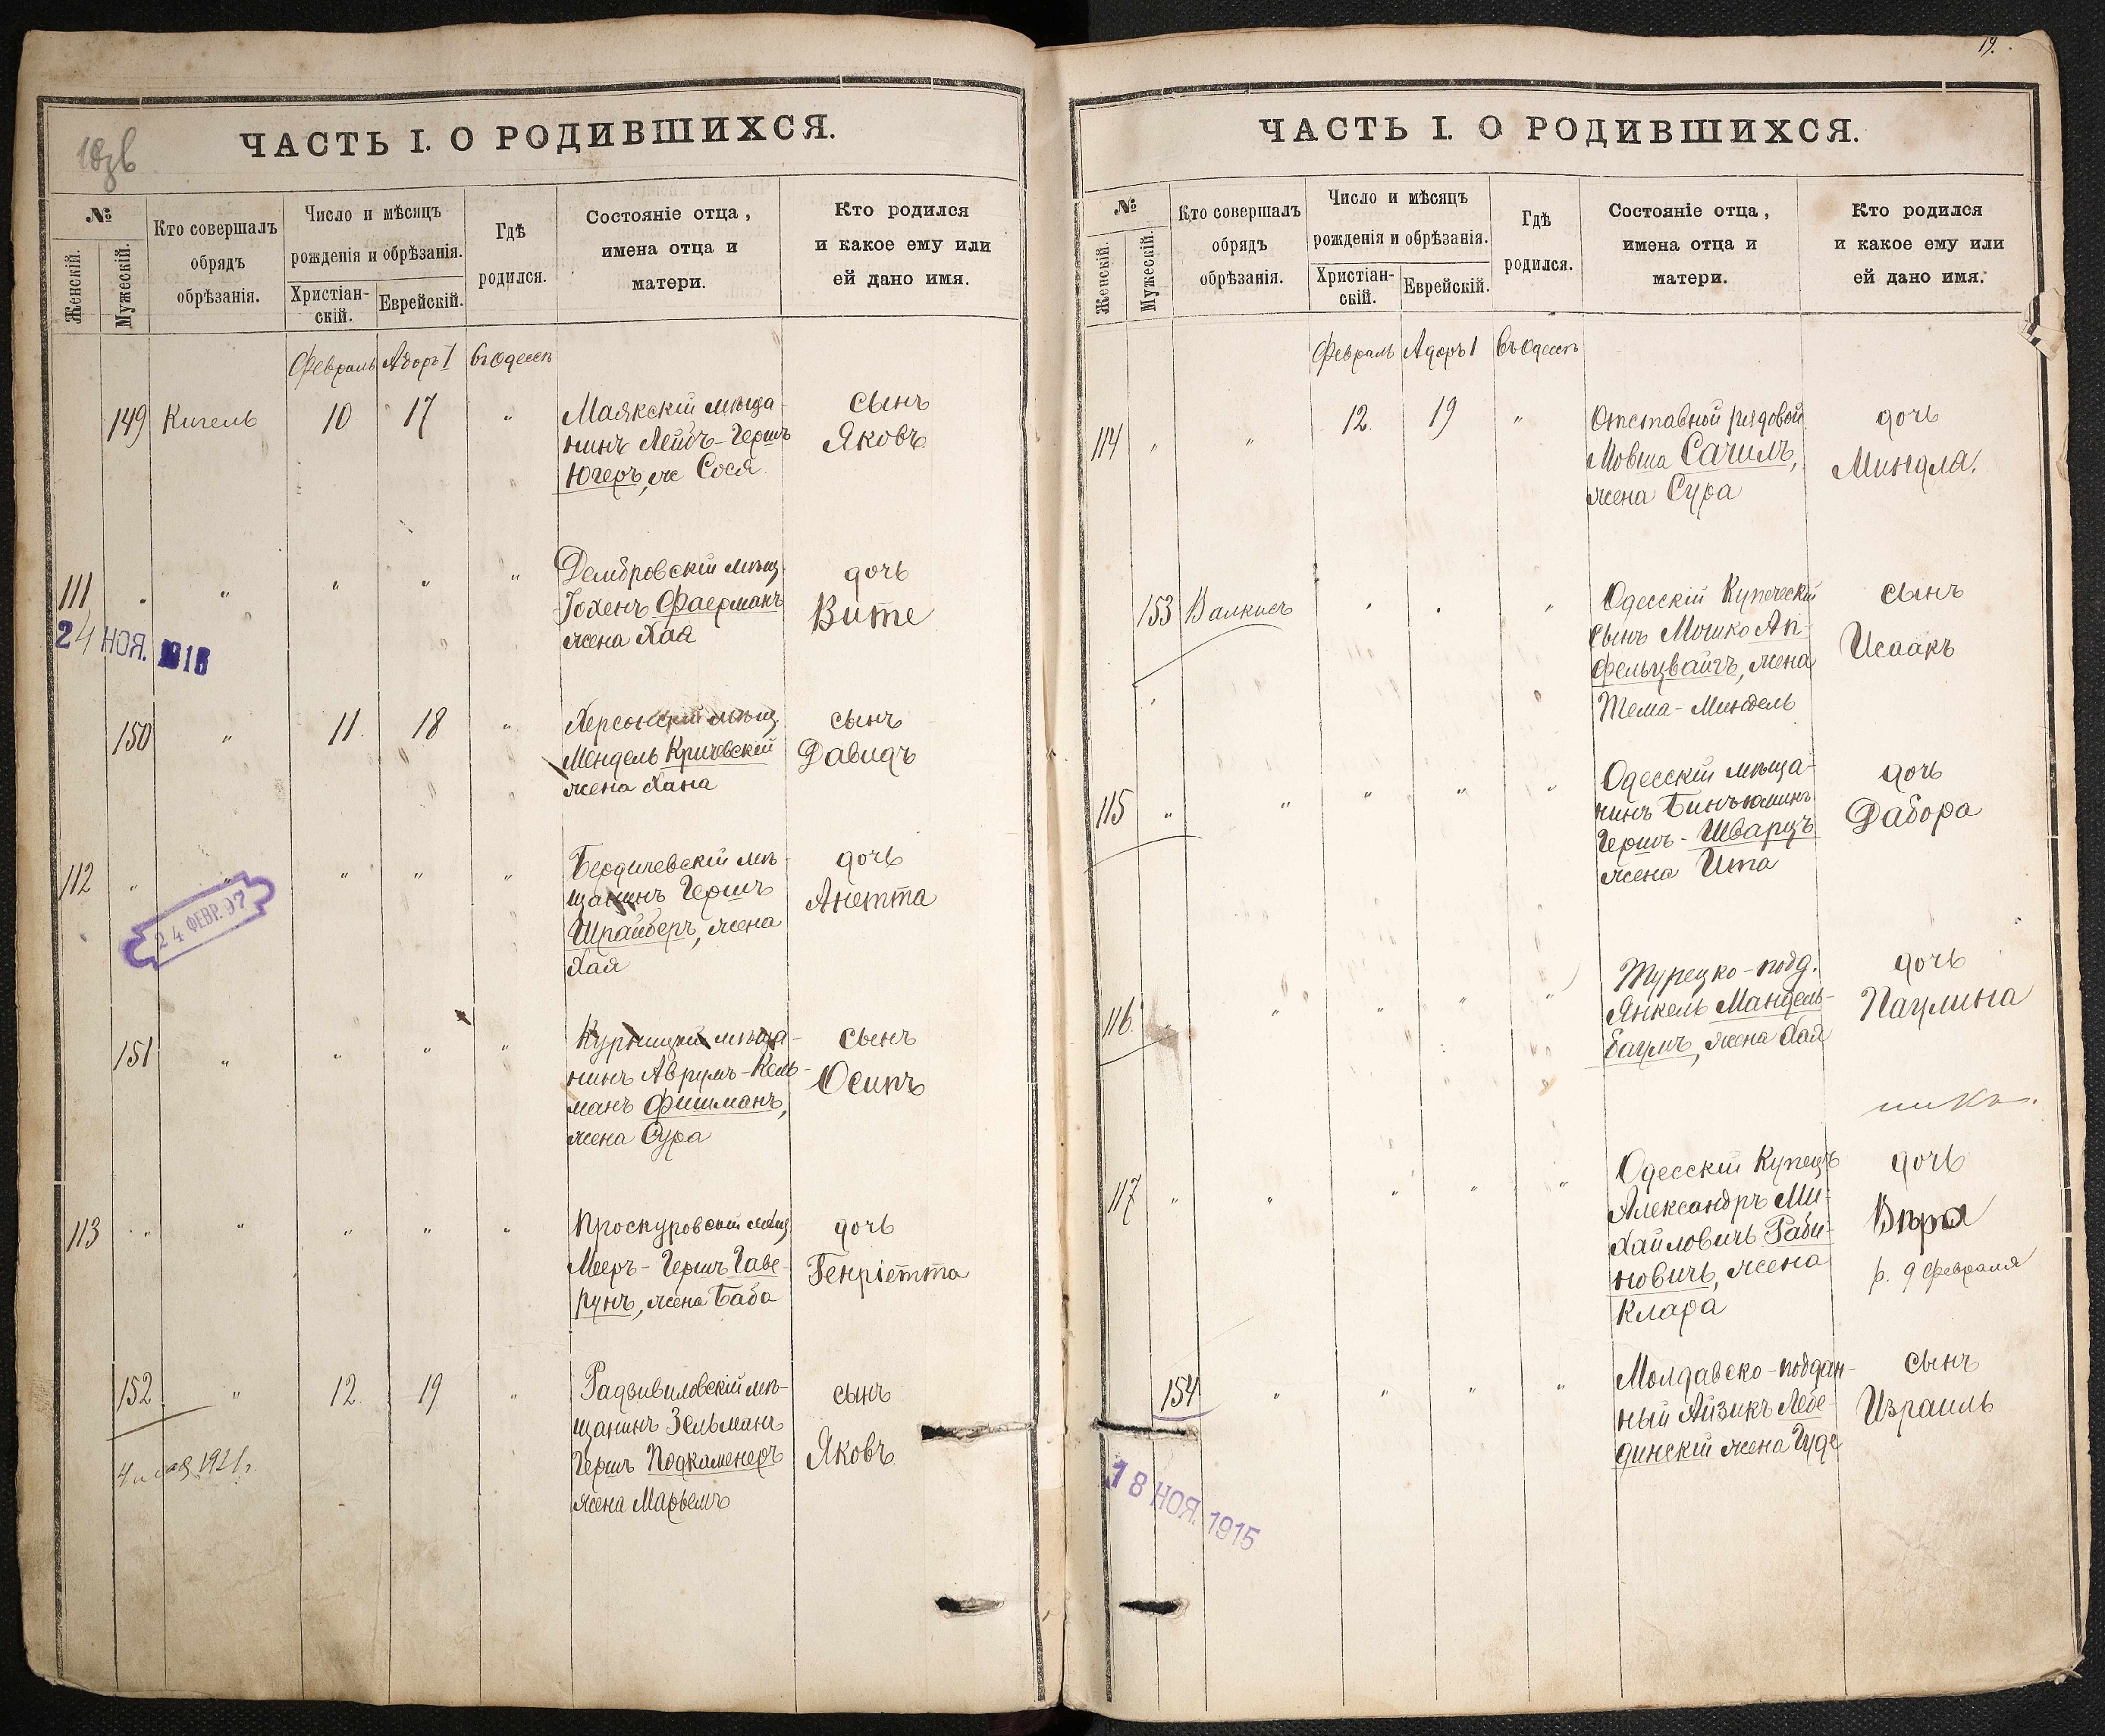 18зв
ЧАСТЬ I. О РОДИВШИХСЯ.
№
Женскій.
Мужескій.
Кто совершалъ
обрядъ
обрѣзанія.
Число и мѣсяцъ
рожденія и обрѣзанія.
Христіан-
скій.
Еврейскій.
Гдѣ
родился.
Состояніе отца,
имена отца и
матери.
Кто родился
и какое ему или
ей дано имя.
Февраль Адоръ I въ Одессѣ
149 Кигель 10 17 „ Маякскій мѣща- сынъ
нинъ Лейбъ-Гершъ Яковъ
Югеръ, ж Сося
111 „ „ „ „ „ Демbровскій мѣщ. дочь
Іохенъ Фаерманъ Вите
жена Хая
24 НОЯ. 1915
150 „ 11. 18 „ Херсонскій мѣщ. сынъ
Мендель Кричевскій Давидъ
жена Хана
112 „ „ „ „ „ Бердичевскій мѣ- дочь
щанинъ Гершъ Анетта
Шрайберъ, жена
Хая
24 ФЕВР. 97
151 „ „ „ „ мѣща- сынъ
нинъ Аврумъ-Кель- Осипъ
манъ Фишманъ,
жена Сура
113 „ „ „ „ „ Проскуровскій мѣщ. дочь
Мееръ-Гершъ Гаве- Генріетта
рунъ, жена Баба
152 „ 12. 19 „ Радзивиловскій мѣ- сынъ
щанинъ Зельманъ
Гершъ Подкаменеръ Яковъ
жена Марьемъ
1921 г.
19.
ЧАСТЬ I. О РОДИВШИХСЯ.
№
Женскій.
Мужескій.
Кто совершалъ
обрядъ
обрѣзанія.
Число и мѣсяцъ
рожденія и обрѣзанія.
Христіан-
скій.
Еврейскій.
Гдѣ
родился.
Состояніе отца,
имена отца и
матери.
Кто родился
и какое ему или
ей дано имя.
Февраль Адоръ I въ Одессѣ
114 „ „ 12. 19 „ Отставной рядовой дочь
Мовша Сачилъ, Миндля.
жена Сура
153 Валкисъ „ „ „ Одесскій Купеческій сынъ
сынъ Мошко Ап- Исаакъ
фельцвайгъ, жена
Тема-Миндель
115 „ „ „ „ „ Одесскій мѣща- дочь
нинъ Биньюминъ Дабора
Гершъ-Шварцъ
жена Ита
116. „ „ „ „ „ Турецко-подд. дочь
Янкель Мандель- Паулина
баумъ, жена Хая
117 „ „ „ „ „ Одесскій Купецъ дочь
Александръ Ми- Вѣра
хайловичъ Раби- р. 9 февраля
новичъ, жена
Клара
154 „ „ „ „ Молдавско-поддан- сынъ
ный Айзикъ Лебе- Израиль
динскій жена Гуде
18 НОЯ. 1915